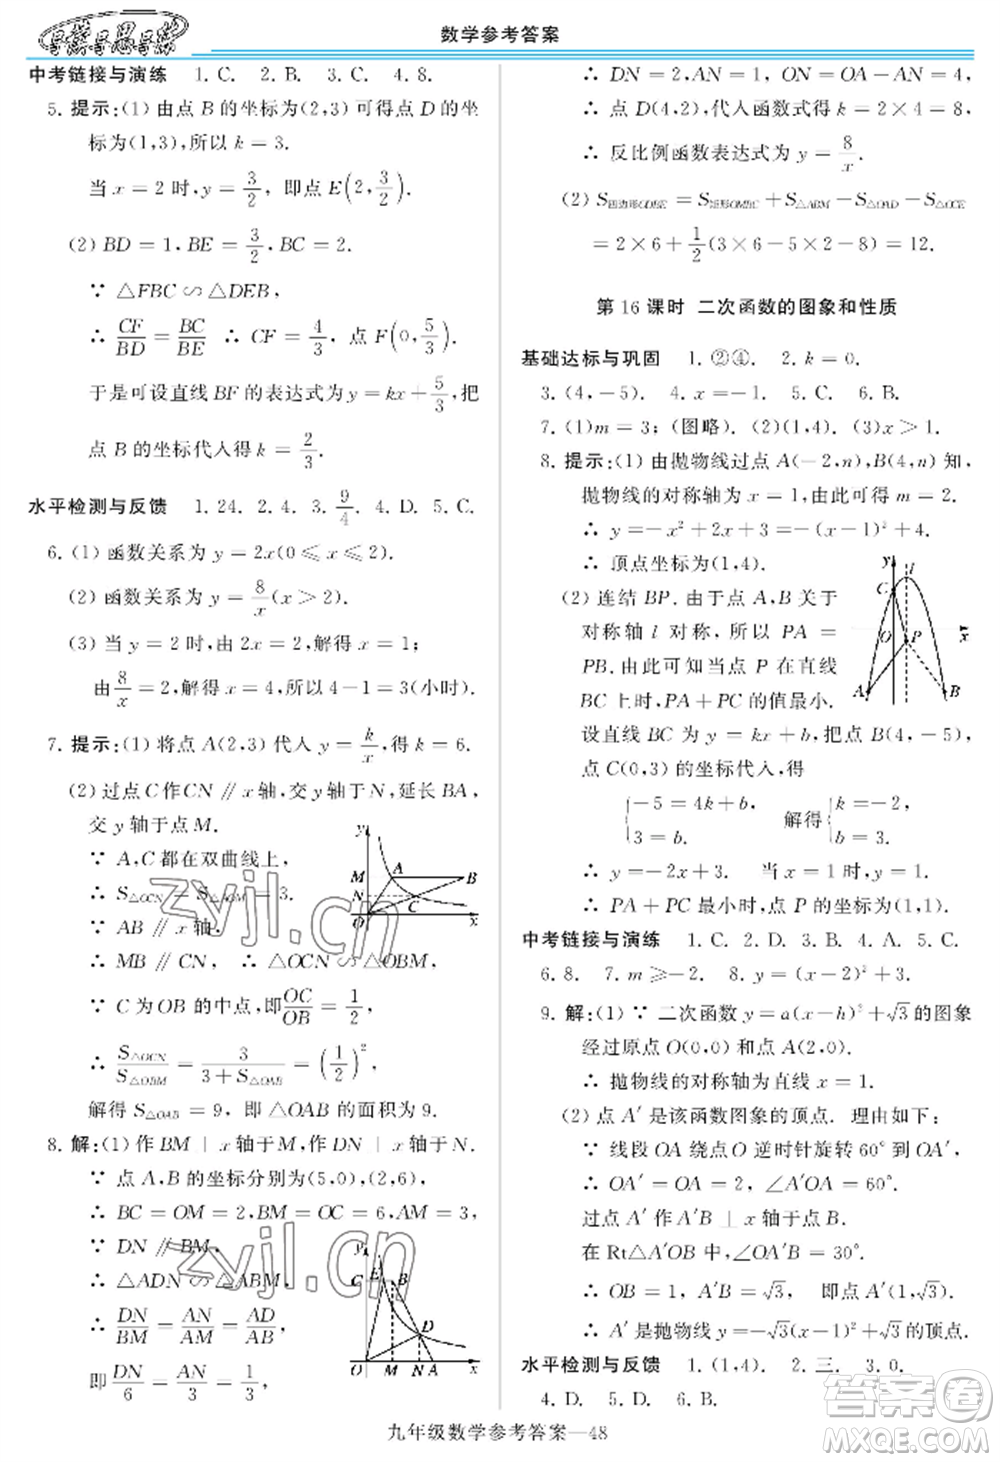 导学导思导练
数学参考答案
中考链接与演练 1. C. 2. B. 3. C. 4. 8.
5. 提示:(1) 由点 B 的坐标为(2,3) 可得点 D 的坐
标为(1,3),所以 k = 3.
当 x = 2 时, y = 3/2, 即点 E(2, 3/2).
(2) BD = 1, BE = 3/2, BC = 2.
∵ △FBC ∽ △DEB,
∴ CF/BD = BC/BE ∴ CF = 4/3, 点 F(0, 5/3).
于是可设直线 BF 的表达式为 y = kx + 5/3, 把
点 B 的坐标代人得 k = 2/3.
水平检测与反馈 1. 24. 2. 4. 3. 9/4. 4. D. 5. C.
6. (1) 函数关系为 y = 2x(0 ≤ x ≤ 2).
(2) 函数关系为 y = 8/x (x > 2).
(3) 当 y = 2 时,由 2x = 2,解得 x = 1;
由 8/x = 2,解得 x = 4. 所以 4 − 1 = 3(小时).
7. 提示:(1) 将点 A(2,3) 代人 y = k/x, 得 k = 6.
(2) 过点 C 作 CN ∥ x 轴, 交 y 轴于 N, 延长 BA,
交 y 轴于点 M.
∵ A, C 都在双曲线上,
∴ S△OCN = S△OAM = 3.
∵ AB ∥ x 轴,
∴ MB ∥ CN ∴ △OCN ∽ △OBM,
∵ C 为 OB 的中点,即 OC/OB = 1/2,
∴ S△OCN/S△OBM = 3/(3 + S△OAB) = (1/2)²,
解得 S△OAB = 9, 即 △OAB 的面积为 9.
y M A B N C O x
8. 解:(1) 作 BM ⊥ x 轴于 M, 作 DN ⊥ x 轴于 N.
∵ 点 A, B 的坐标分别为(5,0),(2,6),
∴ BC = OM = 2, BM = OC = 6, AM = 3,
∵ DN ∥ BM,
∴ △ADN ∽ △ABM,
∴ DN/BM = AN/AM = AD/AB,
即 DN/6 = AN/3 = 1/3,
y C E B D O M N A x
∴ DN = 2, AN = 1, ON = OA − AN = 4,
∴ 点 D(4,2),代人函数式得 k = 2 × 4 = 8,
∴ 反比例函数表达式为 y = 8/x.
(2) S四边形ODBE = S矩形OMBC + S△ABM − S△OAD − S△OCE
= 2 × 6 + 1/2(3 × 6 − 5 × 2 − 8) = 12.
第 16 课时 二次函数的图象和性质
基础达标与巩固 1. ②④. 2. k = 0.
3. (4, − 5). 4. x = − 1. 5. C. 6. B.
7. (1)m = 3; (图略). (2)(1,4). (3)x > 1.
8. 提示:(1) 由抛物线过点 A(− 2,n), B(4,n) 知,
抛物线的对称轴为 x = 1. 所以可得 m = 2.
∴ y = − x² + 2x + 3 = − (x − 1)² + 4.
∴ 顶点坐标为(1,4).
(2) 连结 BP. 由于点 A, B 关于
对称轴 l 对称, 所以 PA =
PB. 由此可知当点 P 在直线
BC 上时, PA + PC 的值最小.
设直线 BC 为 y = kx + b,把点 B(4, − 5),
点 C(0,3) 的坐标代入,得
{ − 5 = 4k + b, 3 = b. 解得 { k = − 2, b = 3.
∴ y = − 2x + 3. 当 x = 1 时, y = 1.
∴ PA + PC 最小时,点 P 的坐标为(1,1).
y l C O P x A B
中考链接与演练 1. C. 2. D. 3. B. 4. A. 5. C.
6. 8. 7. m ≥ − 2. 8. y = (x − 2)² + 3.
9. 解:(1) ∵ 二次函数 y = a(x − h)² + √3 的图象
经过原点 O(0,0) 和点 A(2,0).
∴ 抛物线的对称轴为直线 x = 1.
(2) 点 A′ 是该函数图象的顶点. 理由如下:
∵ 线段 OA 绕点 O 逆时针旋转 60° 到 OA′,
∴ OA′ = OA = 2, ∠A′OA = 60°.
过点 A′ 作 A′B ⊥ x 轴于点 B.
在 Rt△A′OB 中, ∠OA′B = 30°.
∴ OB = 1, A′B = √3, 即点 A′(1, √3).
∴ A′ 是抛物线 y = − √3(x − 1)² + √3 的顶点.
水平检测与反馈 1. (1,4). 2. 三. 3. 0.
4. D. 5. D. 6. B.
九年级数学参考答案—48
zyjl.cn
zyjl.cn
答案圈
MXQE.COM